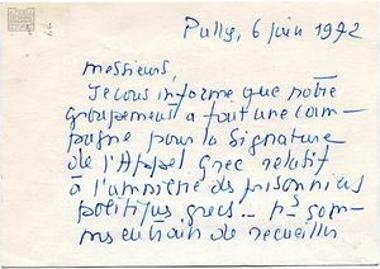 Pully, 6 juin 1972
Messieurs,
Je vous informe que notre
groupement a fait une cam-
pagne pour la Signature
de l'Appel Grec relatif
à l'amnistie des prisonniers
politiques grecs... ns som-
mes en train de recueillir